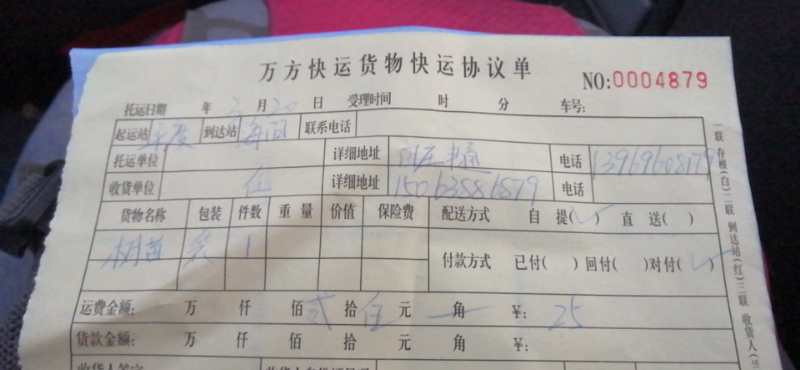 万方快运货物快运协议单
NO:0004879
托运日期 年 2月20日 受理时间 时 分 车号:
起运站 到达站 联系电话
托运单位 详细地址 电话 13969608179
收货单位 详细地址 15063881879 电话
货物名称 包装 件数 重量 价值 保险费 配送方式 自提(✓) 直送( )
树苗 1 付款方式 已付( )回付( )对付(✓)
运费金额: 万 仟 佰 贰拾伍元 角 ¥: 25
货款金额: 万 仟 佰 拾 元 角 ¥:
收货人签字
一联 存根(白)二联 到达站(红)三联 收货人(